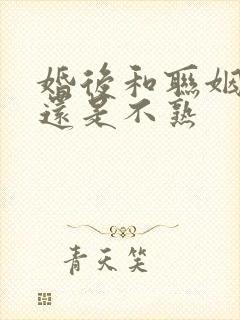 婚後和聯姻
還是不熟
青天笑